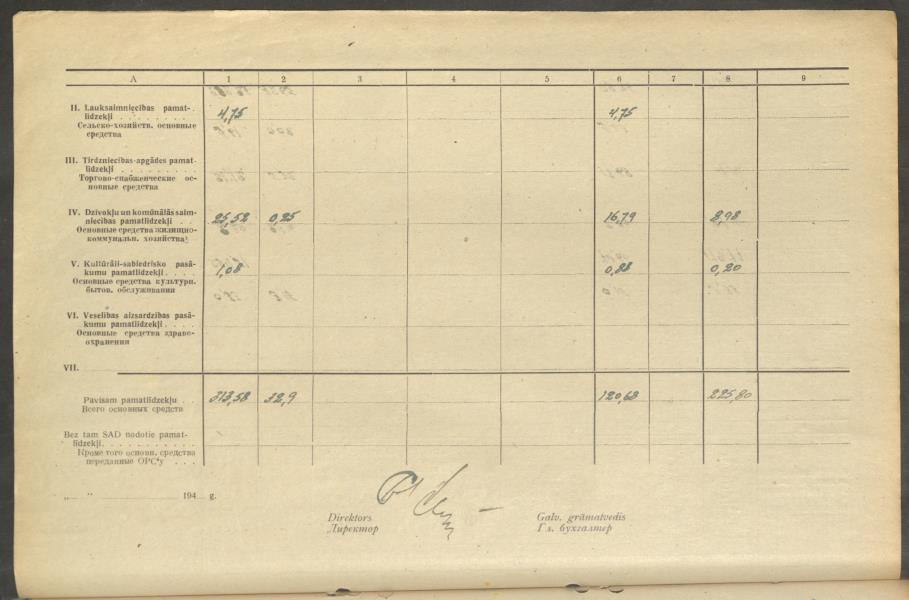 A 1 2 3 4 5 6 7 8 9
II. Lauksaimniecības pamat-
līdzekļi . . . . . . . 4,75 4,75
Сельско-хозяйств. основные
средства
III. Tirdzniecības-apgādes pamat-
līdzekļi . . . . . . .
Торгово-снабженческие ос-
новные средства
IV. Dzīvokļu un komūnālās saim-
niecības pamatlīdzekļi . . 25,52 0,25 16,79 8,98
Основные средства жилищно-
коммунальн. хозяйства
V. Kultūrāli-sabiedrisko pasā-
kumu pamatlīdzekļi . . . 1,08 0,88 0,20
Основные средства культурн.
бытов. обслуживания
VI. Veselības aizsardzības pasā-
kumu pamatlīdzekļi . . . .
Основные средства здраво-
охранения
VII.
Pavisam pamatlīdzekļu . . 313,58 32,9 120,68 225,80
Всего основных средств
Bez tam SAD nodotie pamat-
līdzekļi. . . . . . . . . .
Кроме того основн. средства
переданные ОРС'у . . .
„ “ 194 g.
Direktors Galv. grāmatvedis
Директор Гл. бухгалтер